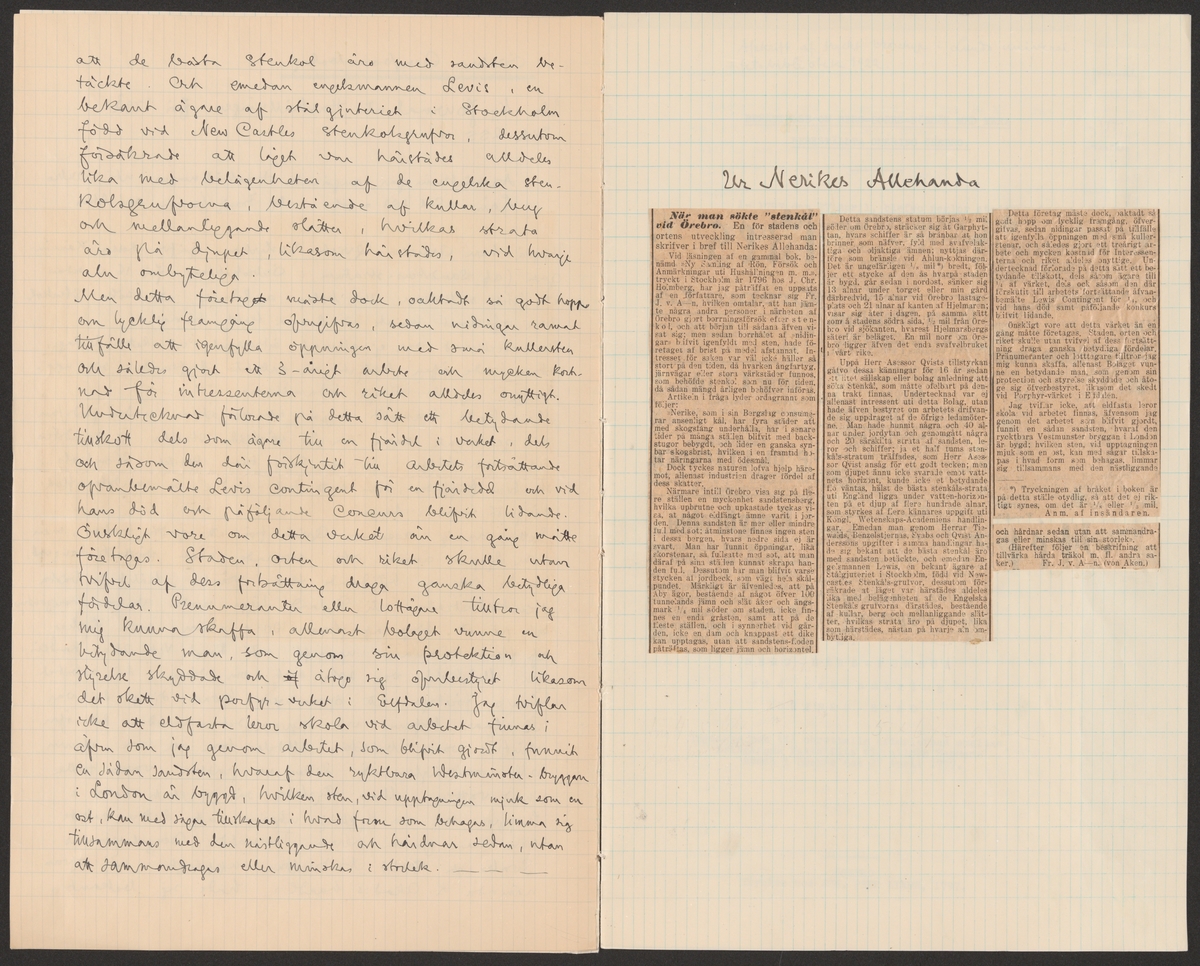 att de bästa stenkol äro med sandsten be-
täckte. Och emedan engelsmannen Levis, en
bekant ägare af stålgjuteriet i Stockholm
född vid New Castles stenkolsgrufvor, dessutom
försäkrade att läget var härstädes alldeles
lika med belägenheten af de engelska sten-
kolsgrufvorna, bestående af kullar, berg
och mellanliggande slätter, hvilkas strata
äro på djupet, likasom härstädes, vid hvarje
aln ombyteliga.
Men detta företag måste dock, oaktadt så godt hopp
om lycklig framgång öfvergifvas, sedan nidingar passat
tillfälle att igenfylla öppningen med små kullersten
och således gjort ett 3-årigt arbete och mycken kost-
nad för intressenterna och riket alldeles onyttigt.
Undertecknad förlorade på detta sätt ett betydande
tillskott dels som ägare till en fjärdel i verket, dels
och såsom den där förskjutit till arbetets fortsättande
ofvanbemälte Levis contingent för en fjärdedel och vid
hans död och påföljande Concurs blifvit lidande.
Önskligt vore om detta verket än en gång måtte
företagas. Staden, orten och riket skulle utan
tvifvel af dess fortsättning draga ganska betydliga
fördelar. Prenumeranter eller lottägare tilltror jag
mig kunna skaffa, allenast bolaget vunne en
betydande man, som genom sin protektion och
styrelse skyddade och åtoge sig öfverbestyret likasom
det skett vid porfyr-verket i Elfdalen. Jag tviflar
icke att eldfasta leror skola vid arbetet finnas;
äfven som jag genom arbetet, som blifvit gjordt, funnit
en sådan sandsten, hvaraf den ryktbara Westminster-bryggan
i London är byggd, hvilken sten, vid upptagningen mjuk som en
ost, kan med sågar tillskapas i hvad form som behagas, limma sig
tillsammans med den nästliggande och hårdnar sedan, utan
att sammandragas eller minskas i storlek. — — —
Ur Nerikes Allehanda
När man sökte "stenkål"
vid Örebro. En för stadens och
ortens utveckling intresserad man
skrifver i bref till Nerikes Allehanda:
Vid läsningen af en gammal bok, be-
nämd »Ny Samling af Rön, Försök och
Anmärkningar uti Hushållningen m. m.»,
tryckt i Stockholm år 1796 hos J. Chr.
Holmberg, har jag påträffat en uppsats
af en författare, som tecknar sig Fr.
J. v. A—n, hvilken omtalar, att han jäm-
te några andra personer i närheten af
Örebro gjort borrningsförsök efter sten-
kol, och att början till sådana äfven vi-
sat sig; men sedan borrhålet af nidin-
gar blifvit igenfyldt med sten, hade fö-
retaget af brist på medel afstannat. In-
tresset för saken var väl icke håller så
stort på den tiden, då hvarken ångfartyg,
järnvägar eller stora värkstäder funnos,
som behöfde stenkol som nu för tiden,
då sådan mängd årligen behöfver införas.
Artikeln i fråga lyder ordagrannt som
följer:
Nerike, som i sin Bergslag consume-
rar ansenligt kål, har fyra städer att
med skogsfång underhålla, har i senare
tider på många ställen blifvit med back-
stugor bebygdt, och lider en ganska syn-
bar skogsbrist, hvilken i en framtid ho-
tar näringarna med ödesmål.
Dock tyckes naturen lofva hjelp häre-
mot, allenast industrien drager fördel af
dess skatter.
Närmare intill Örebro visa sig på fle-
ra ställen en myckenhet sandstensberg,
hvilka upbrutne och upkastade tyckas vi-
sa, at något eldfängt ämne varit i jor-
den. Denna sandsten är mer eller mindre
full med sot; åtminstone finnes ingen sten
i dessa bergen, hvars nedre sida ej är
svart. Man har funnit öppningar, lika
skorstenar, så fullsatte med sot, att man
däraf på sina ställen kunnat skrapa han-
den full. Dessutom har man blifvit varse
stycken af jordbeck, som vägt hela skål-
pundet. Märkligt är älvenledes, att på
Åby ägor, bestående af något öfver 100
tunnelands jämn och slät åker och ängs-
mark ½, mil söder om staden, icke fin-
nes en enda gråsten, samt att på de
fleste ställen, och i synnerhet vid går-
den, icke en dam och knappast ett dike
kan upptagas, utan att sandstens-floden
påträffas, som ligger jämn och horizontel.
Detta sandstens stratum börjas ½ mil
söder om Örebro, sträcker sig åt Garphyt-
tan, hvars schiffer är så brinbar at hon
brinner, som näfver, fyld med svafvelak-
tiga och oljaktiga ämnen; nyttjas där-
före som bränsle vid Alun-kokningen.
Det är ungefärligen ½ mil*) bredt, föl-
jer ett stycke af den ås hvarpå staden
är bygd, går sedan i nordost, sänker sig
13 alnar under torget eller min gård
därbredvid, 15 alnar vid Örebro lastage-
plats och 21 alnar af kanten af Hjelmaren;
visar sig åter i dagen, på samma sätt
som å stadens södra sida, ½ mil från Öre-
bro vid sjökanten, hvarest Hjelmarsbergs
säteri är bebygdt. En mil norr om Öre-
bro ligger äfven det enda svafvelbruket
i vårt rike.
Uppå Herr Assessor Qvists tillstyrkan
gåfvo dessa känningar för 16 år sedan
ett litet sällskap eller bolag anledning att
söka stenkål, som måtte ofelbart på den-
na trakt finnas. Undertecknad var ej
allenast intressent uti detta bolag, utan
hade äfven bestyret om arbetets drifvan-
de sig uppdraget af de öfriga ledamöter-
ne. Man hade hunnit några och 40 al-
nar under jordytan och genomgått några
och 20 särskilta strata af sandsten, le-
ror och schiffer; ja et half tums sten-
kåls-stratum träffades, som Herr Asses-
sor Qvist ansåg för ett godt tecken; men
som djupet ännu icke svarade emot vatt-
nets horizont, kunde icke et botydande
flö väntas, hälst de bästa stenkåls-strata
uti England ligga under vatten-horizon-
ten på et djup af flere hundrade alnar,
som styrkes af flere kännares uppgift uti
Köngl. Wetenskaps-Academiens handlin-
gar. Emedan man genom Herrar Ti-
walds, Benzelstjernas, Svabs och Qvist An-
derssons uppgifter i samma handlingar ha-
de sig bekant att de bästa stenkål äro
med sandsten betäckte, och emedan En-
gelsmannen Lewis, en bekant ägare af
Stålgjuteriet i Stockholm, född vid New-
castles Stenkåls-grufvor, dessutom för-
säkrade at läget var härstädes aldeles
lika med belägenheten af de Engelska
Stenkåls-grufvorna därstädes, bestående
af kullar, berg och mellanliggande slät-
ter, hvilkas strata äro på djupet, lika
som härstädes, nästan på hvarje aln om-
bytliga.
Detta företag måste dock, oaktadt så
godt hopp om tycklig framgång, öfver-
gifvas, sedan nidingar passat på tillfälle
att igenfylla öppningen med små kuller-
stenar, och således gjort ett treårigt ar-
bete och mycken kostnad för Intressen-
terna och riket aldeles onyttige. Un-
dertecknad förlorade på detta sätt ett be-
tydande tillskott, dels såsom ägare till
¼ af värket, dels ock såsom den där
förskutit till arbetets fortsättande äfvan-
bemälte Lewis Contingent för ¼, och
vid hans död samt påföljande konkurs
blifvit lidande.
Önskligt vore at detta värket än en
gång måtte företagas. Staden, orten och
riket skulle utan tvifvel af dess fortsätt-
ning draga ganska betydliga fördelar.
Prænumeranter och lottägare tilltror jag
mig kunna skaffa, allenast Bolaget vun-
ne en betydande man, som genom sin
protection och styrelse skyddade och åto-
ge sig öfverbestyret, likasom det skedt
vid Porphyr-värket i Elfdalen.
Jag tviflar icke, att eldfasta leror
skola vid arbetet finnas, äfvensom jag
genom det arbetet som blifvit gjordt,
funnit en sådan sandsten, hvaraf den
rycktbara Westmunster bryggan i London
är bygd; hvilken sten, vid uptagningen
mjuk som en ost, kan med sågar tilska-
pas i hvad form som behagas, limmar
sig tillsammans med den nästliggande
*) Tryckningen af bråket i boken är
på detta ställe otydlig, så att det ej rik-
tigt synes, om det är ¼ eller ½ mil.
Anm. af insändaren.
och hårdnar sedan utan att sammandra-
gas eller minskas till sin storlek.
(Härefter följer en beskrifning att
tillvärka hårda träkol m. fl. andra sa-
ker.) Fr. J. v. A—n. (von Aken.)